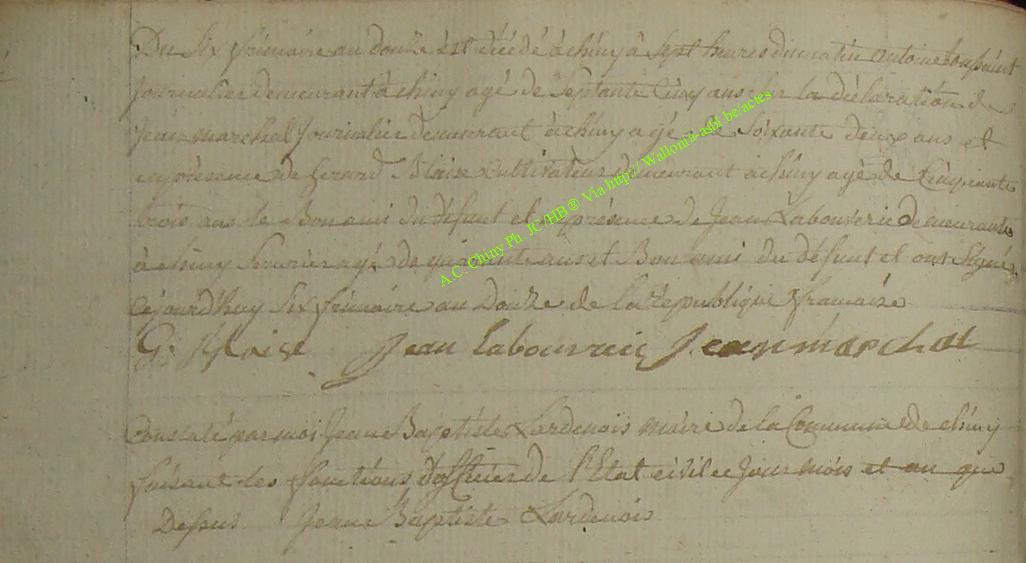 Du Six frimaire an douze est décédé à chiny à Sept heures du matin antoine toussaint
Journalier demeurant à chiny agé de Septante Cinq ans la déclaration de
Jean marchal Journalier demeurant à chiny agé de Soixante deux ans et
en présence de Gerard Blaise Cultivateur demeurant à chiny agé de Cinquante
trois ans le Bon ami du défunt et en présence de Jean Labouverie demeurante
à chiny agé de quarante ans et Bon ami du défunt et ont Signé
Cejourd'huy Six frimaire an Douze de la République francaise
G. Blaise Jean Labouverie Jean marchal
Constaté par moi Jeane Baptiste Lardenois maire de la Commune de chiny
faisant les fonctions d'officier de l'Etat civil ce Jour mois et an que
Dessus Jeane Baptiste Lardenois
A.C. Chiny Ph. JC/HB ® Via http://Wallonia-asbl.be/actes